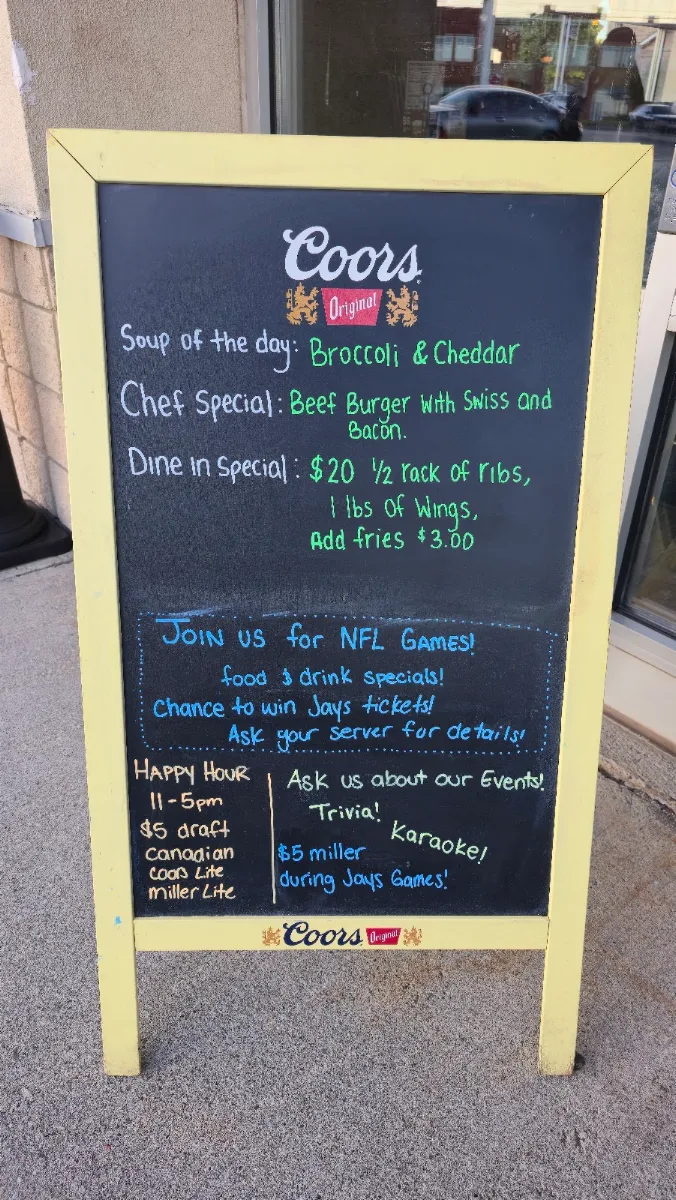 Coors
Original
Soup of the day: Broccoli & Cheddar
Chef Special: Beef Burger with Swiss and
Bacon.
Dine in Special: $20 1/2 rack of ribs,
1 lbs of Wings,
Add fries $3.00
Join us for NFL Games!
food & drink specials!
Chance to win Jays tickets!
Ask your server for details!
Happy Hour
11-5pm
$5 draft
Canadian
Coors Lite
miller Lite
Ask us about our Events!
Trivia!
Karaoke!
$5 miller
during Jays Games!
Coors Original